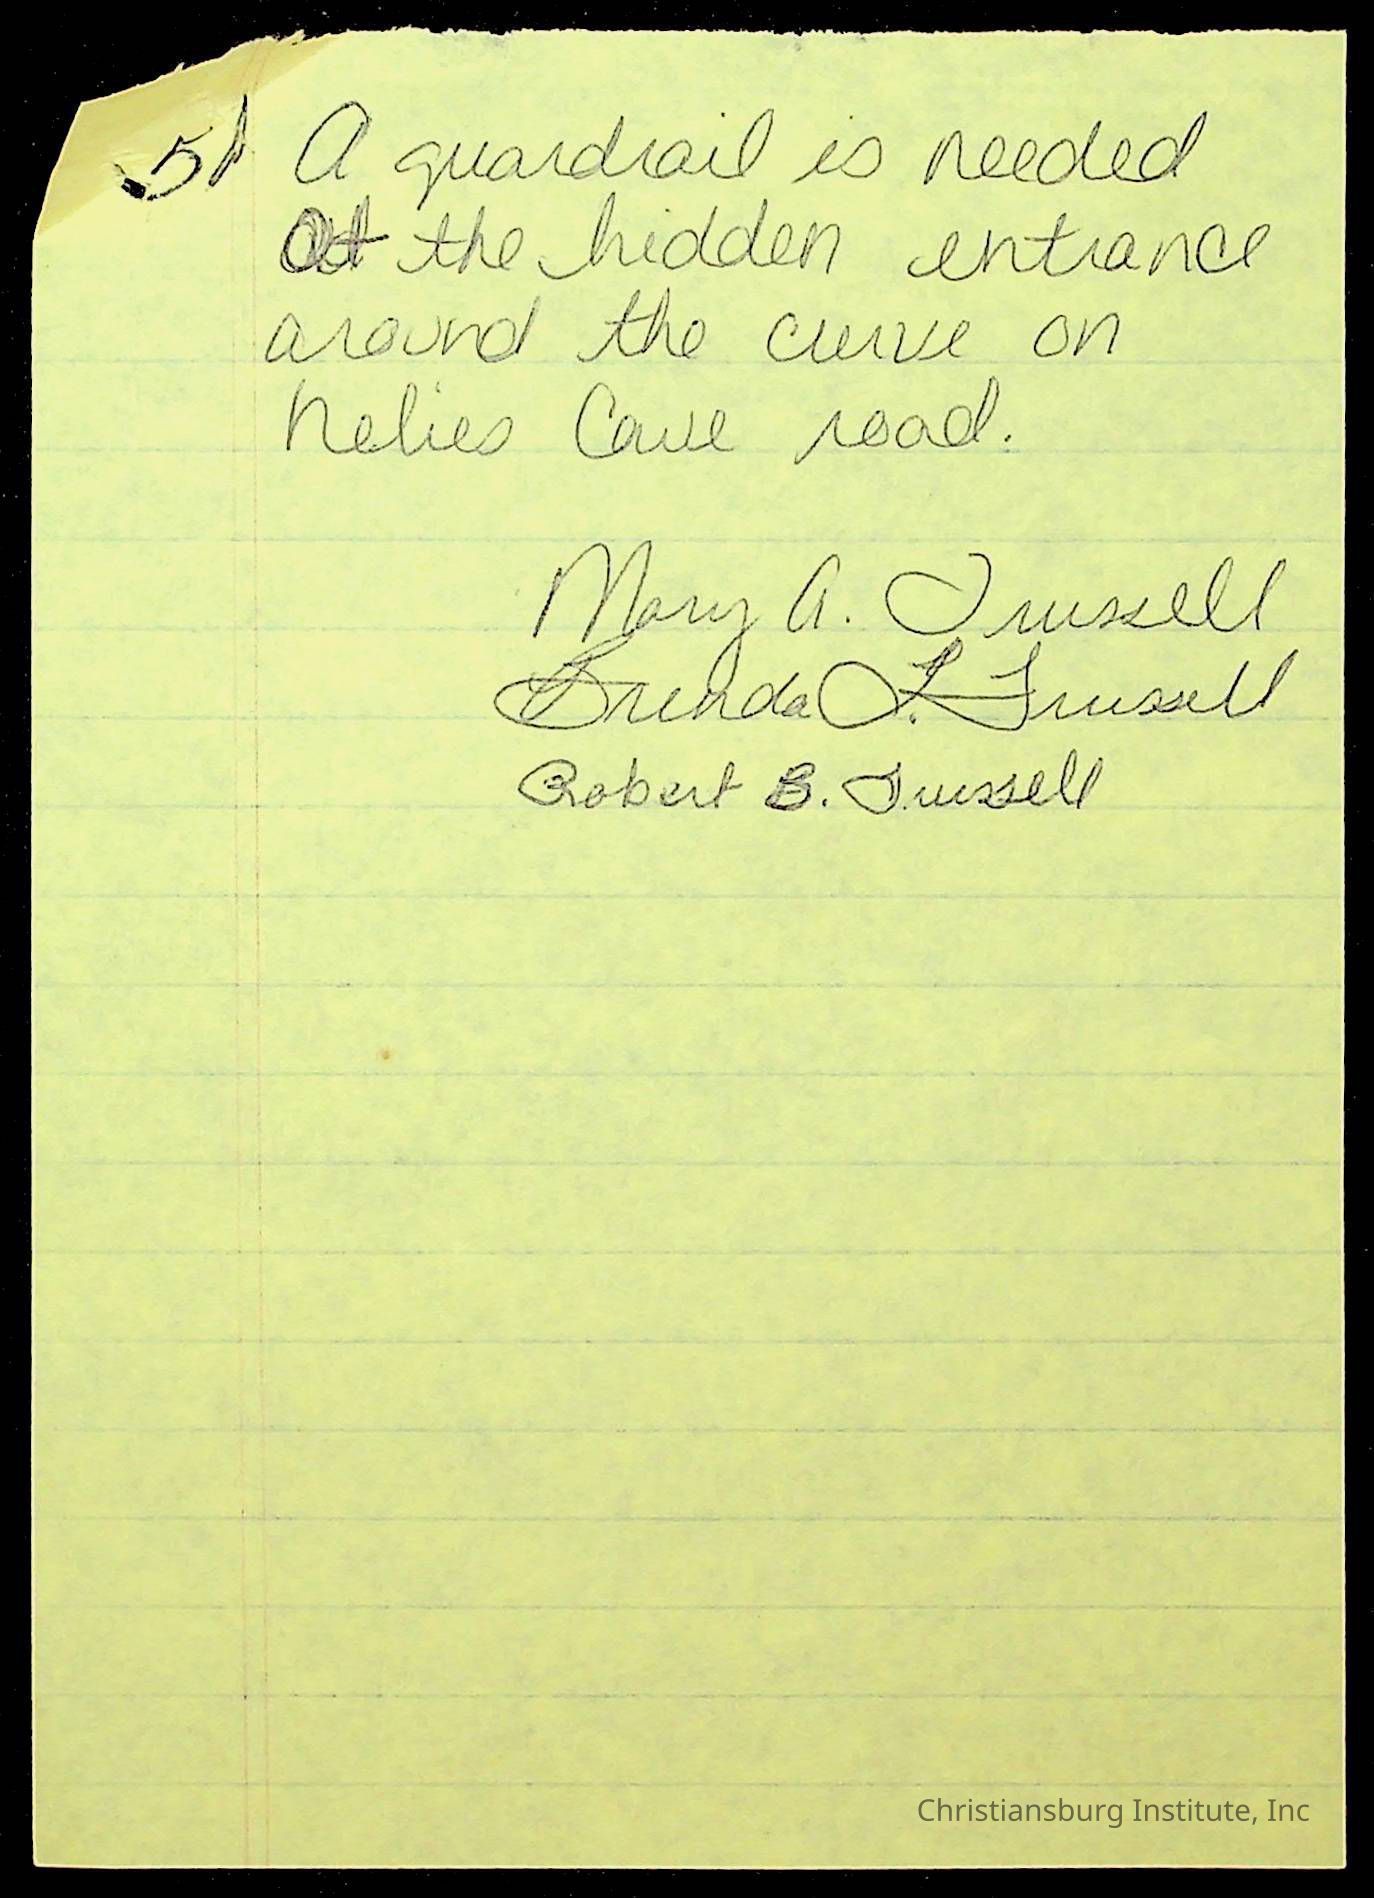 5) A guardrail is needed
at the hidden entrance
around the curve on
Nelies Cave road.
Mary A. Trussell
Brenda L. Trussell
Robert B. Trussell
Christiansburg Institute, Inc